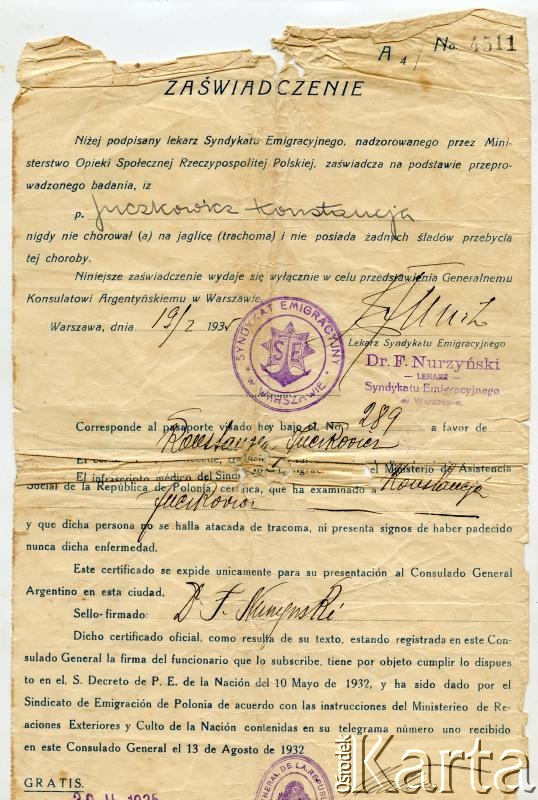 A 4 No 4511
ZAŚWIADCZENIE
Niżej podpisany lekarz Syndykatu Emigracyjnego, nadzorowanego przez Mini-
sterstwo Opieki Społecznej Rzeczypospolitej Polskiej, zaświadcza na podstawie przepro-
wadzonego badania, iz
p. Juczkowicz Konstancja
nigdy nie chorował (a) na jaglicę (trachoma) i nie posiada żadnych śladów przebycia
tej choroby.
Niniejsze zaświadczenie wydaje się wyłącznie w celu przedstawienia Generalnemu
Konsulatowi Argentyńskiemu w Warszawie.
Warszawa, dnia 19/2 1935
Lekarz Syndykatu Emigracyjnego
SYNDYKAT EMIGRACYJNY
SE
W WARSZAWIE
Dr. F. Nurzyński
— LEKARZ —
Syndykatu Emigracyjnego
w Warszawie.
Corresponde al pasaporte visado hoy bajo el No. 289 a favor de
Konstancja Juczkowicz
El infrascripto médico del el Ministerio de Asistencia
Social de la República de Polonia certifica, que ha examinado a Konstancja
Juczkowicz
y que dicha persona no se halla atacada de tracoma, ni presenta signos de haber padecido
nunca dicha enfermedad.
Este certificado se expide unicamente para su presentación al Consulado General
Argentino en esta ciudad.
Sello-firmado: Dr F. Nurzynski
Dicho certificado oficial, como resulta de su texto, estando registrada en este Con-
sulado General la firma del funcionario que lo subscribe, tiene por objeto cumplir lo dispues
to en el, S. Decreto de P. E. de la Nación del 10 Mayo de 1932, y ha sido dado por el
Sindicato de Emigración de Polonia de acuerdo con las instrucciones del Ministerieo de Re-
aciones Exteriores y Culto de la Nación contenidas en su telegrama número uno recibido
en este Consulado General el 13 de Agosto de 1932
GRATIS.
GENERAL DE LA REPUBL
Ośrodek
Karta